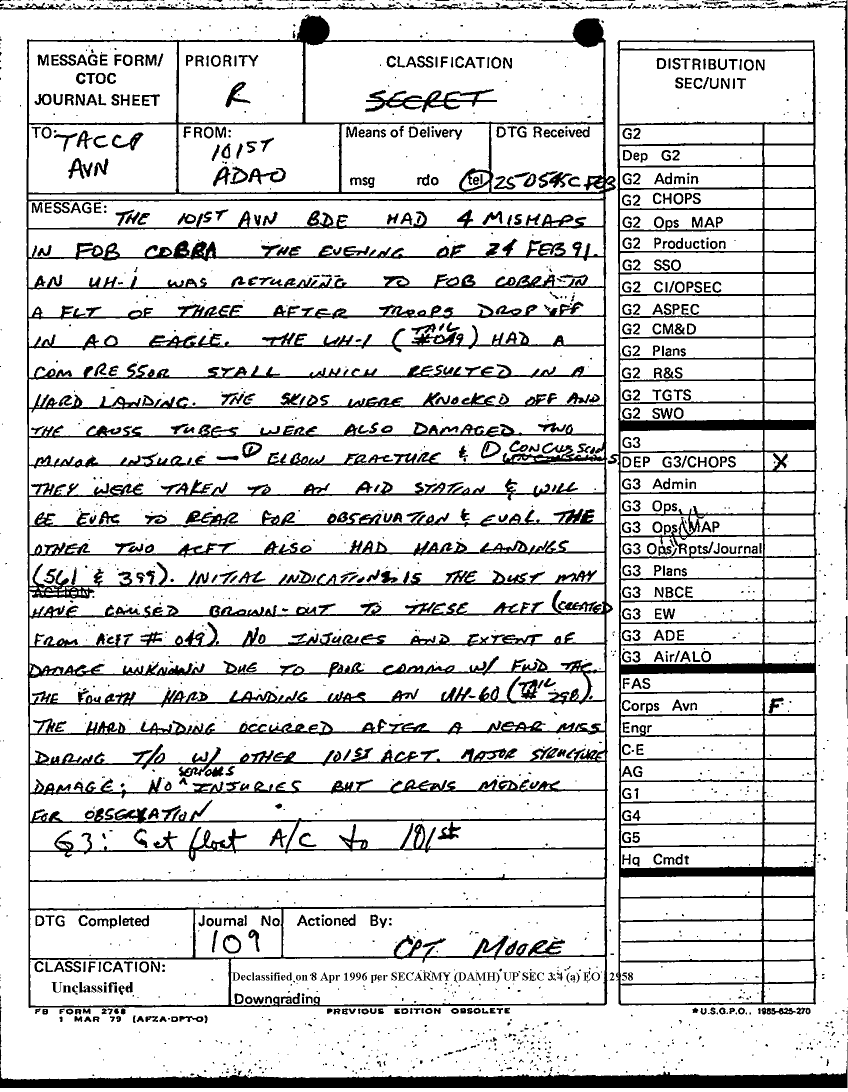 MESSAGE FORM/
CTOC
JOURNAL SHEET
PRIORITY
R
CLASSIFICATION
SECRET
DISTRIBUTION
SEC/UNIT
TO: TACCP
AVN
FROM:
101ST
ADAO
Means of Delivery
msg rdo tel
DTG Received
250545C FEB
MESSAGE: THE 101ST AVN BDE HAD 4 MISHAPS
IN FOB COBRA THE EVENING OF 24 FEB 91.
AN UH-1 WAS RETURNING TO FOB COBRA IN
A FLT OF THREE AFTER TROOPS DROP OFF
IN AO EAGLE. THE UH-1 (TAIL #049) HAD A
COMPRESSOR STALL WHICH RESULTED IN A
HARD LANDING. THE SKIDS WERE KNOCKED OFF AND
THE CAUSS TUBES WERE ALSO DAMAGED. TWO
MINOR INJURIE — ① ELBOW FRACTURE & ① CONCUSSION
THEY WERE TAKEN TO AN AID STATION & WILL
BE EVAC TO REAR FOR OBSERVATION & EVAL. THE
OTHER TWO ACFT ALSO HAD HARD LANDINGS
(561 & 399). INITIAL INDICATIONS IS THE DUST MAY
ACTION:
HAVE CAUSED BROWN-OUT TO THESE ACFT (CREATED
FROM ACFT # 049). NO INJURIES AND EXTENT OF
DAMAGE UNKNOWN DUE TO POOR COMMO W/ FWD TAC.
THE FOURTH HARD LANDING WAS AN UH-60 (TAIL # 298).
THE HARD LANDING OCCURRED AFTER A NEAR MISS
DURING T/O W/ OTHER 101ST ACFT. MAJOR STRUCTURE
DAMAGE; NO SERIOUS INJURIES BUT CREWS MEDEVAC
FOR OBSERVATION
G3: Get float A/C to 101st
DTG Completed
Journal No
109
Actioned By:
CPT. MOORE
CLASSIFICATION:
Unclassified
Declassified on 8 Apr 1996 per SECARMY (DAMH) UP SEC 3.4 (a) EO 12958
Downgrading
FB FORM 2768
1 MAR 79 (AFZA-DPT-O)
PREVIOUS EDITION OBSOLETE
*U.S.G.P.O., 1985-625-270
G2
Dep G2
G2 Admin
G2 CHOPS
G2 Ops MAP
G2 Production
G2 SSO
G2 CI/OPSEC
G2 ASPEC
G2 CM&D
G2 Plans
G2 R&S
G2 TGTS
G2 SWO
G3
DEP G3/CHOPS X
G3 Admin
G3 Ops
G3 Ops/MAP
G3 Ops/Rpts/Journal
G3 Plans
G3 NBCE
G3 EW
G3 ADE
G3 Air/ALO
FAS
Corps Avn F
Engr
C-E
AG
G1
G4
G5
Hq Cmdt